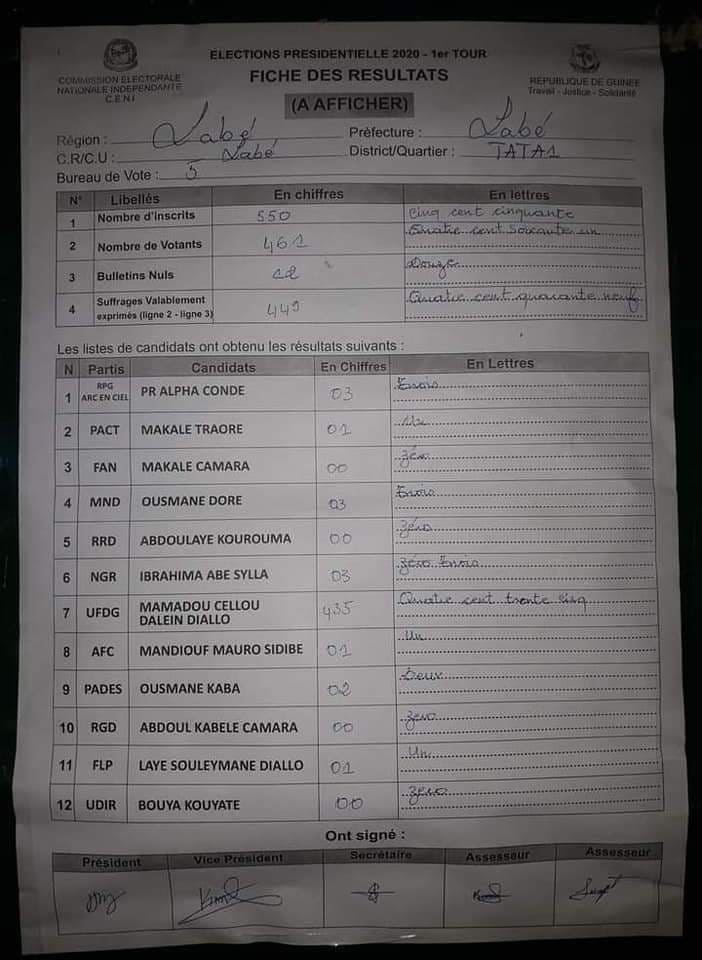 ELECTIONS PRESIDENTIELLE 2020 - 1er TOUR
FICHE DES RESULTATS
(A AFFICHER)
COMMISSION ELECTORALE
NATIONALE INDEPENDANTE
C.E.N.I
REPUBLIQUE DE GUINEE
Travail - Justice - Solidarité
Région : Labé Préfecture : Labé
C.R/C.U : Labé District/Quartier : TATA1
Bureau de Vote : 5
N° Libellés En chiffres En lettres
1 Nombre d'Inscrits 550 Cinq cent cinquante
2 Nombre de Votants 461 Quatre cent soixante un
3 Bulletins Nuls 12 Douze
4 Suffrages Valablement exprimés (ligne 2 - ligne 3) 449 Quatre cent quarante neuf
Les listes de candidats ont obtenu les résultats suivants :
N Partis Candidats En Chiffres En Lettres
1 RPG ARC EN CIEL PR ALPHA CONDE 03 Trois
2 PACT MAKALE TRAORE 01 Un
3 FAN MAKALE CAMARA 00 zéro
4 MND OUSMANE DORE 03 Trois
5 RRD ABDOULAYE KOUROUMA 00 zéro
6 NGR IBRAHIMA ABE SYLLA 03 zéro Trois
7 UFDG MAMADOU CELLOU DALEIN DIALLO 435 Quatre cent trente cinq
8 AFC MANDIOUF MAURO SIDIBE 01 Un
9 PADES OUSMANE KABA 02 Deux
10 RGD ABDOUL KABELE CAMARA 00 zero
11 FLP LAYE SOULEYMANE DIALLO 01 Un
12 UDIR BOUYA KOUYATE 00 zéro
Ont signé :
Président Vice Président Secrétaire Assesseur Assesseur